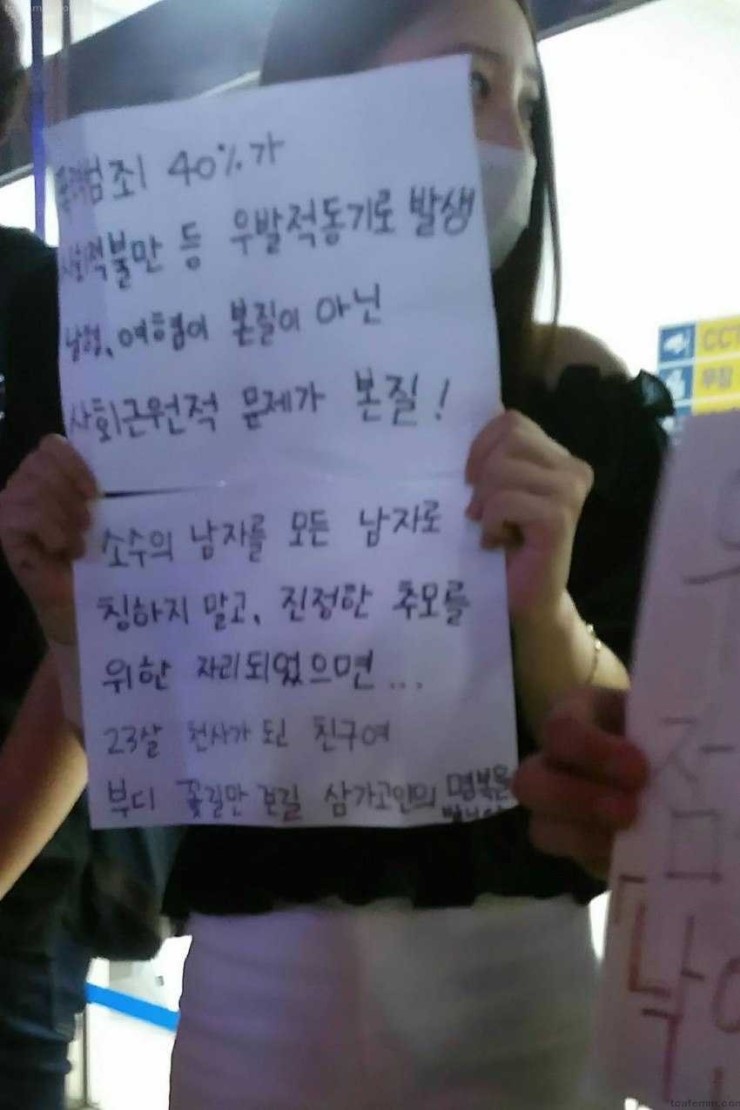 40%가
불만 등 우발적동기로 발생
남혐, 여혐이 본질이 아닌
사회근원적 문제가 본질!
소수의 남자를 모든 남자로
칭하지 말고, 진정한 추모를
위한 자리되었으면...
23살 천사가 된 친구여
부디 꽃길만 걷길 삼가고인의 명복을
CCT